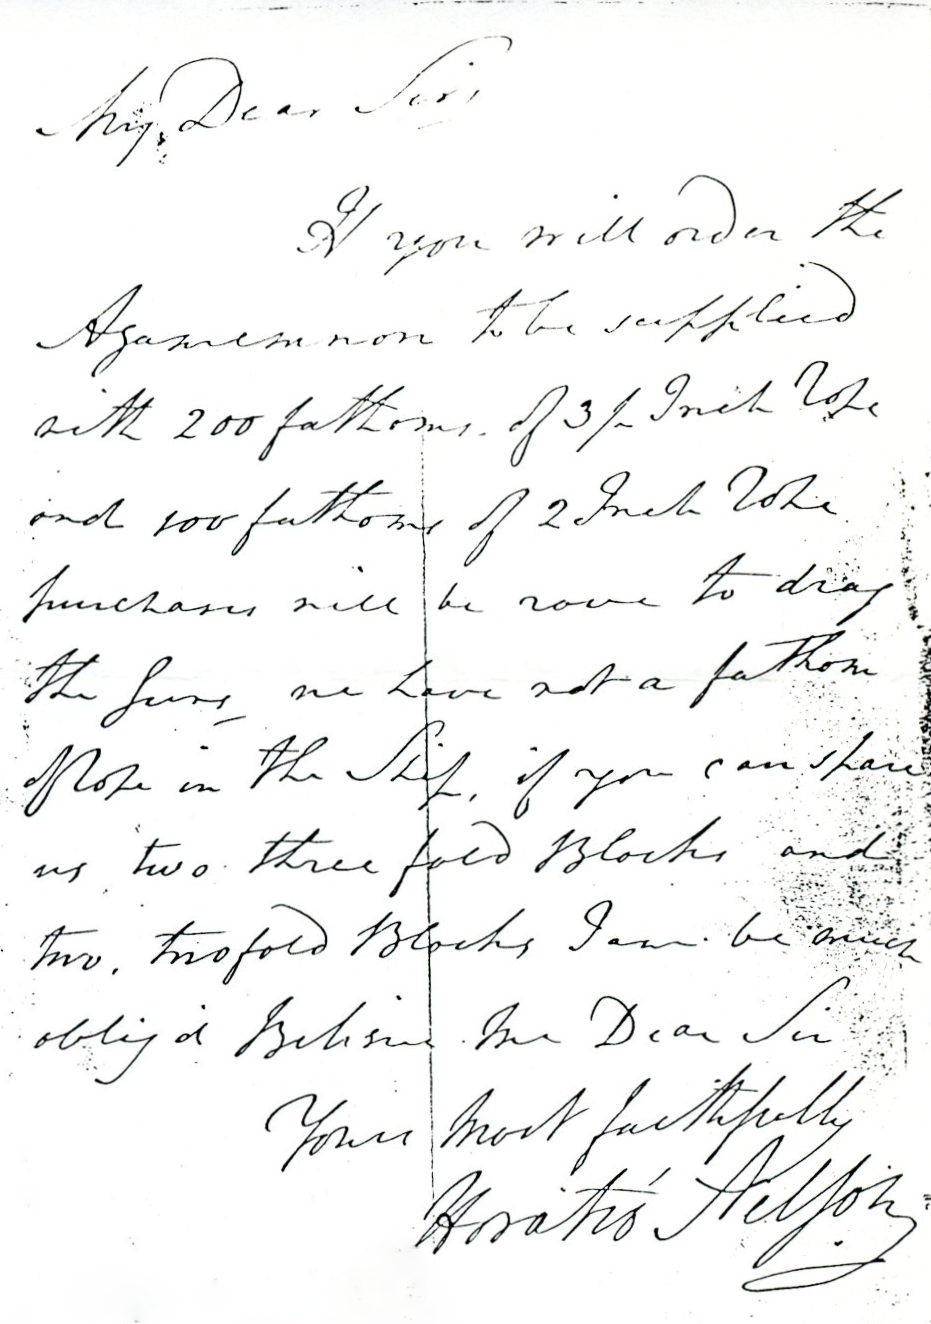 My Dear Sir,
If you will order the
Agamemnon to be supplied
with 200 fathoms. of 3½ Inch Rope
and 100 fathoms of 2 Inch Rope
purchases will be rove to drag
the Guns, we have not a fathom
of Rope in the Ship, if you can spare
us two three fold Blocks and
two, twofold Blocks I am be much
oblig'd Believe Me Dear Sir
Yours Most faithfully
Horatio Nelson